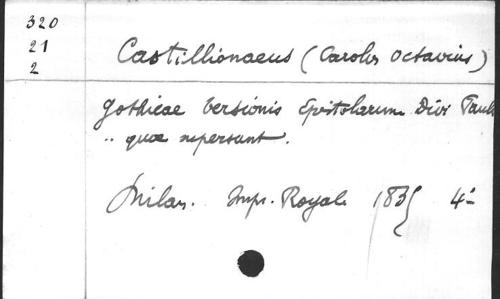 320
21
2
Castillionaeus (Carolus Octavius)
Gothicae Versionis Epistolarum Divi Pauli
.. quae supersunt.
Milan. Impr. Royale 1835 4º